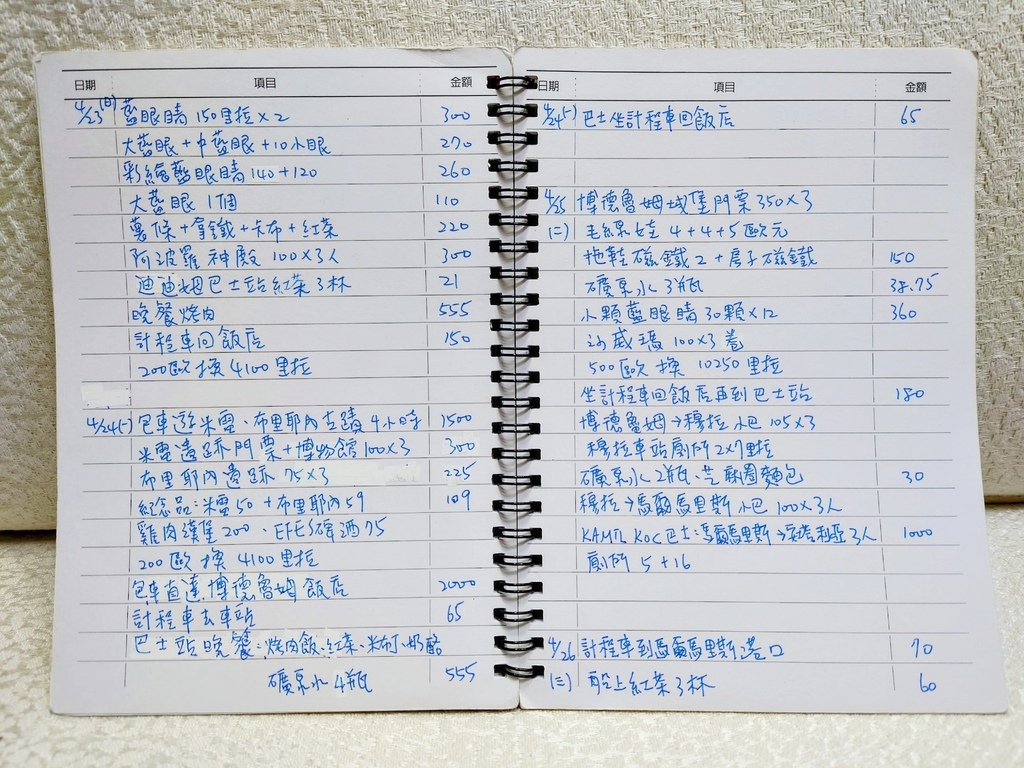 日期 項目 金額
4/23(日) 藍眼睛 150里拉×2 300
大藍眼+中藍眼+10小眼 270
彩繪藍眼睛 140+120 260
大藍眼 1個 110
薯條+拿鐵+卡布+紅茶 220
阿波羅神殿 100×3人 300
迪迪姆巴士站紅茶3杯 21
晚餐烤肉 555
計程車回飯店 150
200歐換4100里拉
4/24(一) 包車遊米雷、布里耶內古蹟 4小時 1500
米雷遺跡門票+博物館100×3 300
布里耶內遺跡 75×3 225
紀念品:米雷50+布里耶內59 109
雞肉漢堡200、EFES啤酒75
200歐換4100里拉
包車直達博德魯姆飯店 2000
計程車去車站 65
巴士站晚餐:烤肉飯、紅茶、米布丁、奶酪
礦泉水4瓶 555
日期 項目 金額
4/24(一) 巴士坐計程車回飯店 65
4/25 博德魯姆城堡門票350×3
(二) 毛線娃娃 4+4+5歐元
拖鞋磁鐵2+房子磁鐵 150
礦泉水3瓶 38.75
小顆藍眼睛30顆×12 360
沙威瑪100×3卷
500歐換 10250里拉
坐計程車回飯店再到巴士站 180
博德魯姆→穆拉 小巴 105×3
穆拉車站廁所2×7里拉
礦泉水2瓶、芝麻圈麵包 30
穆拉→馬爾馬里斯 小巴 100×3人
KAMIL KOC巴士:馬爾馬里斯→安塔利亞3人 1000
廁所 5+16
4/26 計程車到馬爾馬里斯港口 70
(三) 船上紅茶3杯 60